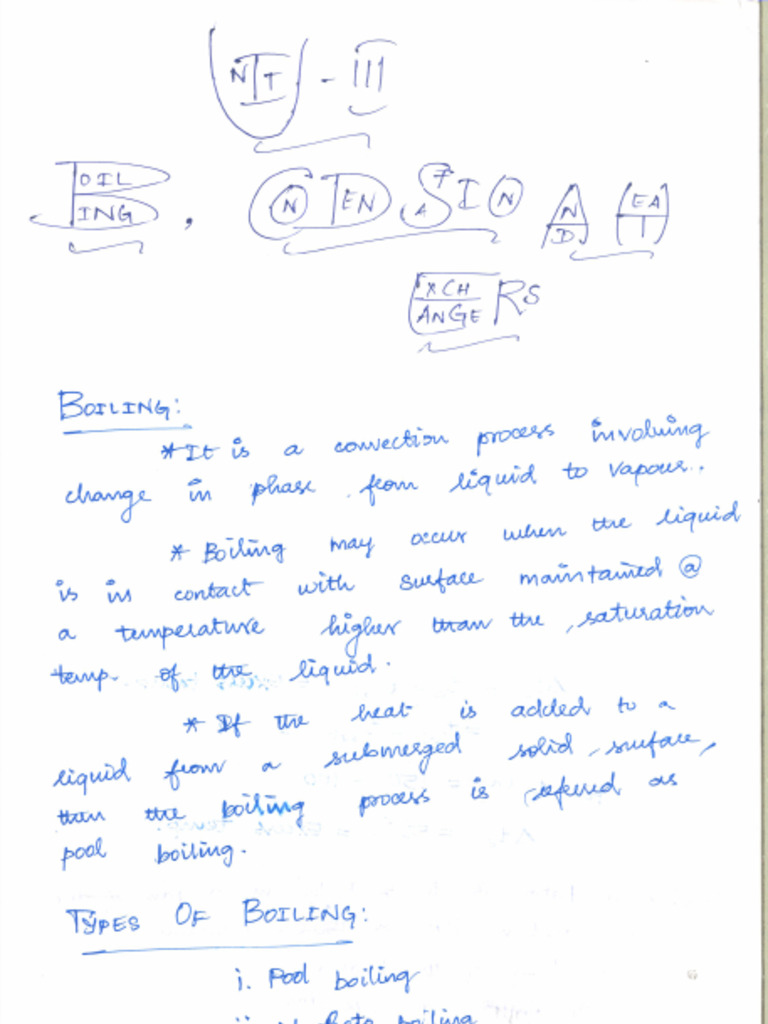 UNIT - III
BOILING, CONDENSATION AND HEAT
EXCHANGERS
BOILING:
*It is a convection process involving
change in phase from liquid to vapour.
* Boiling may occur when the liquid
is in contact with surface maintained @
a temperature higher than the saturation
temp. of the liquid.
* If the heat is added to a
liquid from a submerged solid surface,
then the boiling process is refered as
pool boiling.
TYPES OF BOILING:
i. Pool boiling
boiling